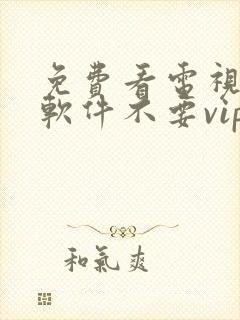 免費看電視
軟件不要vip
和氣爽